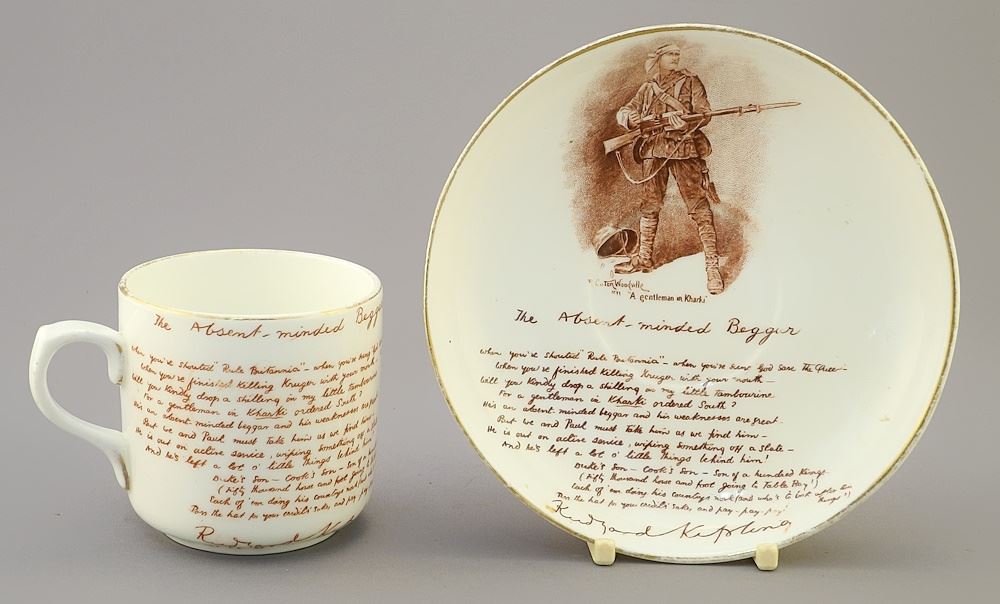 The Absent-minded Beggar
When you've shouted "Rule Britannia" - when you've
When you've finished killing Kruger with your mouth
Will you kindly drop a shilling in my little tambourine
For a gentleman in Kharki ordered South?
He's an absent minded beggar and his weaknesses are
But we and Paul must take him as we find
He is out on active service, wiping something off a
And he's left a lot o' little things behind
Duke's son - Cook's son - Son of a
(Fifty thousand horse and foot going
Each of 'em doing his country's work
Pass the hat for your credit's sake, and pay - pay
Rudyard
Caton Woodville
"A gentleman in Kharki"
The Absent-minded Beggar
When you've shouted "Rule Britannia" - when you've sung God save The Queen -
When you've finished killing Kruger with your mouth -
Will you kindly drop a shilling in my little tambourine
For a gentleman in Kharki ordered South?
He's an absent minded beggar and his weaknesses are great.
But we and Paul must take him as we find him -
He is out on active service, wiping something off a slate -
And he's left a lot o' little things behind him!
Duke's son - Cook's son - Son of a hundred Kings.
(Fifty thousand horse and foot going to Table Bay!)
Each of 'em doing his country's work (and who's to look after their
things?)
Pass the hat for your credit's sake, and pay - pay - pay!
Rudyard Kipling